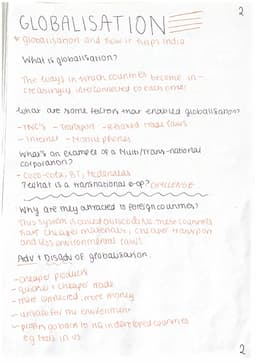 2
GLOBALISATION
* globalisation and how it helps India
What is globalisation?
The ways in which countries become in-
creasingly interconnected to each other
what are some factors that enabled globalisation?
-TNC's -Transport -Relaxed trade laws
-Internet -Mobile phones
What's an example of a Multi/Trans-national
corporation?
-Coca-cola, BT, Mcdonalds
? What is a transnational co-op? CHALLENGE
Why are they attracted to foreign countries?
This system is called outsource. These countries
have cheaper materials, cheaper transport
and less environmental laws
Adv + Disadv of globalisation.
-cheaper products
-quicker + cheaper trade
-more connected, more money
-unsafe for the environment
-profits go back to HQ in developed countries
eg Nike in US
2